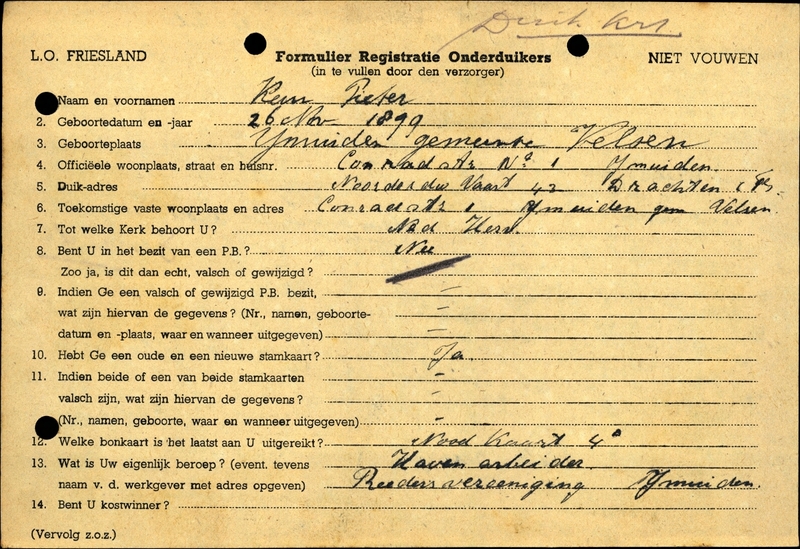 Duik krt
L.O. FRIESLAND Formulier Registratie Onderduikers NIET VOUWEN
(in te vullen door den verzorger)
Naam en voornamen Keur Pieter
2. Geboortedatum en -jaar 26 Nov 1899
3. Geboorteplaats Ymuiden gemeente Velsen
4. Officiëele woonplaats, straat en huisnr. Conradstr No 1 Ymuiden.
5. Duik-adres Noorderdw Vaart 42 Drachten
6. Toekomstige vaste woonplaats en adres Conradstr 1 Ymuiden gem Velsen
7. Tot welke Kerk behoort U? Ned Herv
8. Bent U in het bezit van een P.B.? Nee
Zoo ja, is dit dan echt, valsch of gewijzigd?
9. Indien Ge een valsch of gewijzigd P.B. bezit, –
wat zijn hiervan de gegevens? (Nr., namen, geboorte- –
datum en -plaats, waar en wanneer uitgegeven) –
10. Hebt Ge een oude en een nieuwe stamkaart? Ja
11. Indien beide of een van beide stamkaarten –
valsch zijn, wat zijn hiervan de gegevens? –
(Nr., namen, geboorte, waar en wanneer uitgegeven) –
12. Welke bonkaart is het laatst aan U uitgereikt? Nood Kaart 4e
13. Wat is Uw eigenlijk beroep? (event. tevens Havenarbeider
naam v. d. werkgever met adres opgeven) Reedersvereeniging Ymuiden.
14. Bent U kostwinner?
(Vervolg z.o.z.)